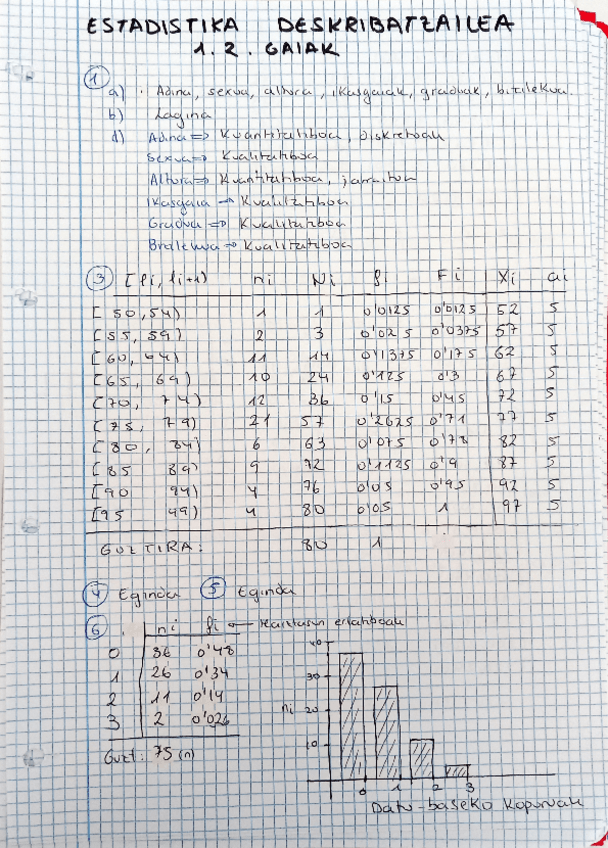 ESTADISTIKA DESKRIBATZAILEA
1. 2. GAIAK
1
a) · Adina, sexua, altura, ikasgaiak, graduak, bizilekua.
b) Lagina
d) Adina => Kuantitatiboa, diskretoak
Sexua => Kualitatiboa
Altura => Kuantitatiboa, jarraitua
Ikasgaia -> Kualitatiboa
Gradua => Kualitatiboa
Kualitatiboa
3 [li, li+1) ni Ni fi Fi Xi ai
[50, 54) 1 1 0'0125 0'0125 52 5
[55, 59) 2 3 0'025 0'0375 57 5
[60, 64) 11 14 0'1375 0'175 62 5
[65, 69) 10 24 0'125 0'3 67 5
[70, 74) 12 36 0'15 0'45 72 5
[75, 79) 21 57 0'2625 0'71 77 5
[80, 84) 6 63 0'075 0'78 82 5
[85 89) 9 72 0'1125 0'9 87 5
[90 94) 4 76 0'05 0'95 92 5
[95 99) 4 80 0'05 1 97 5
GUZTIRA: 80 1
4 Eginda 5 Eginda
6 ni fi <- Maiztasun erlatiboak
0 36 0'48
1 26 0'34
2 11 0'14
3 2 0'026
Guzt: 75 (n)
40
30
ni 20
10
0 1 2 3
Datu-baseko kopuruak